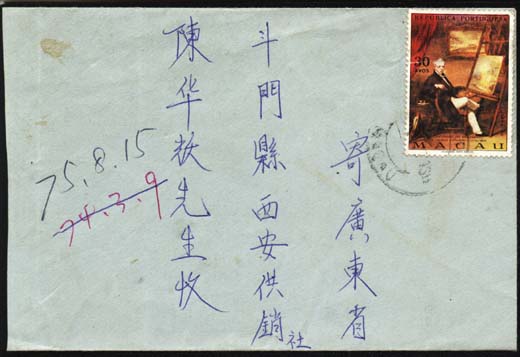 寄廣東省
斗門縣西安供銷社
陳华敉先生收
75.8.15
74.3.9
REPUBLICA PORTUGUESA
30
AVOS
MACAU